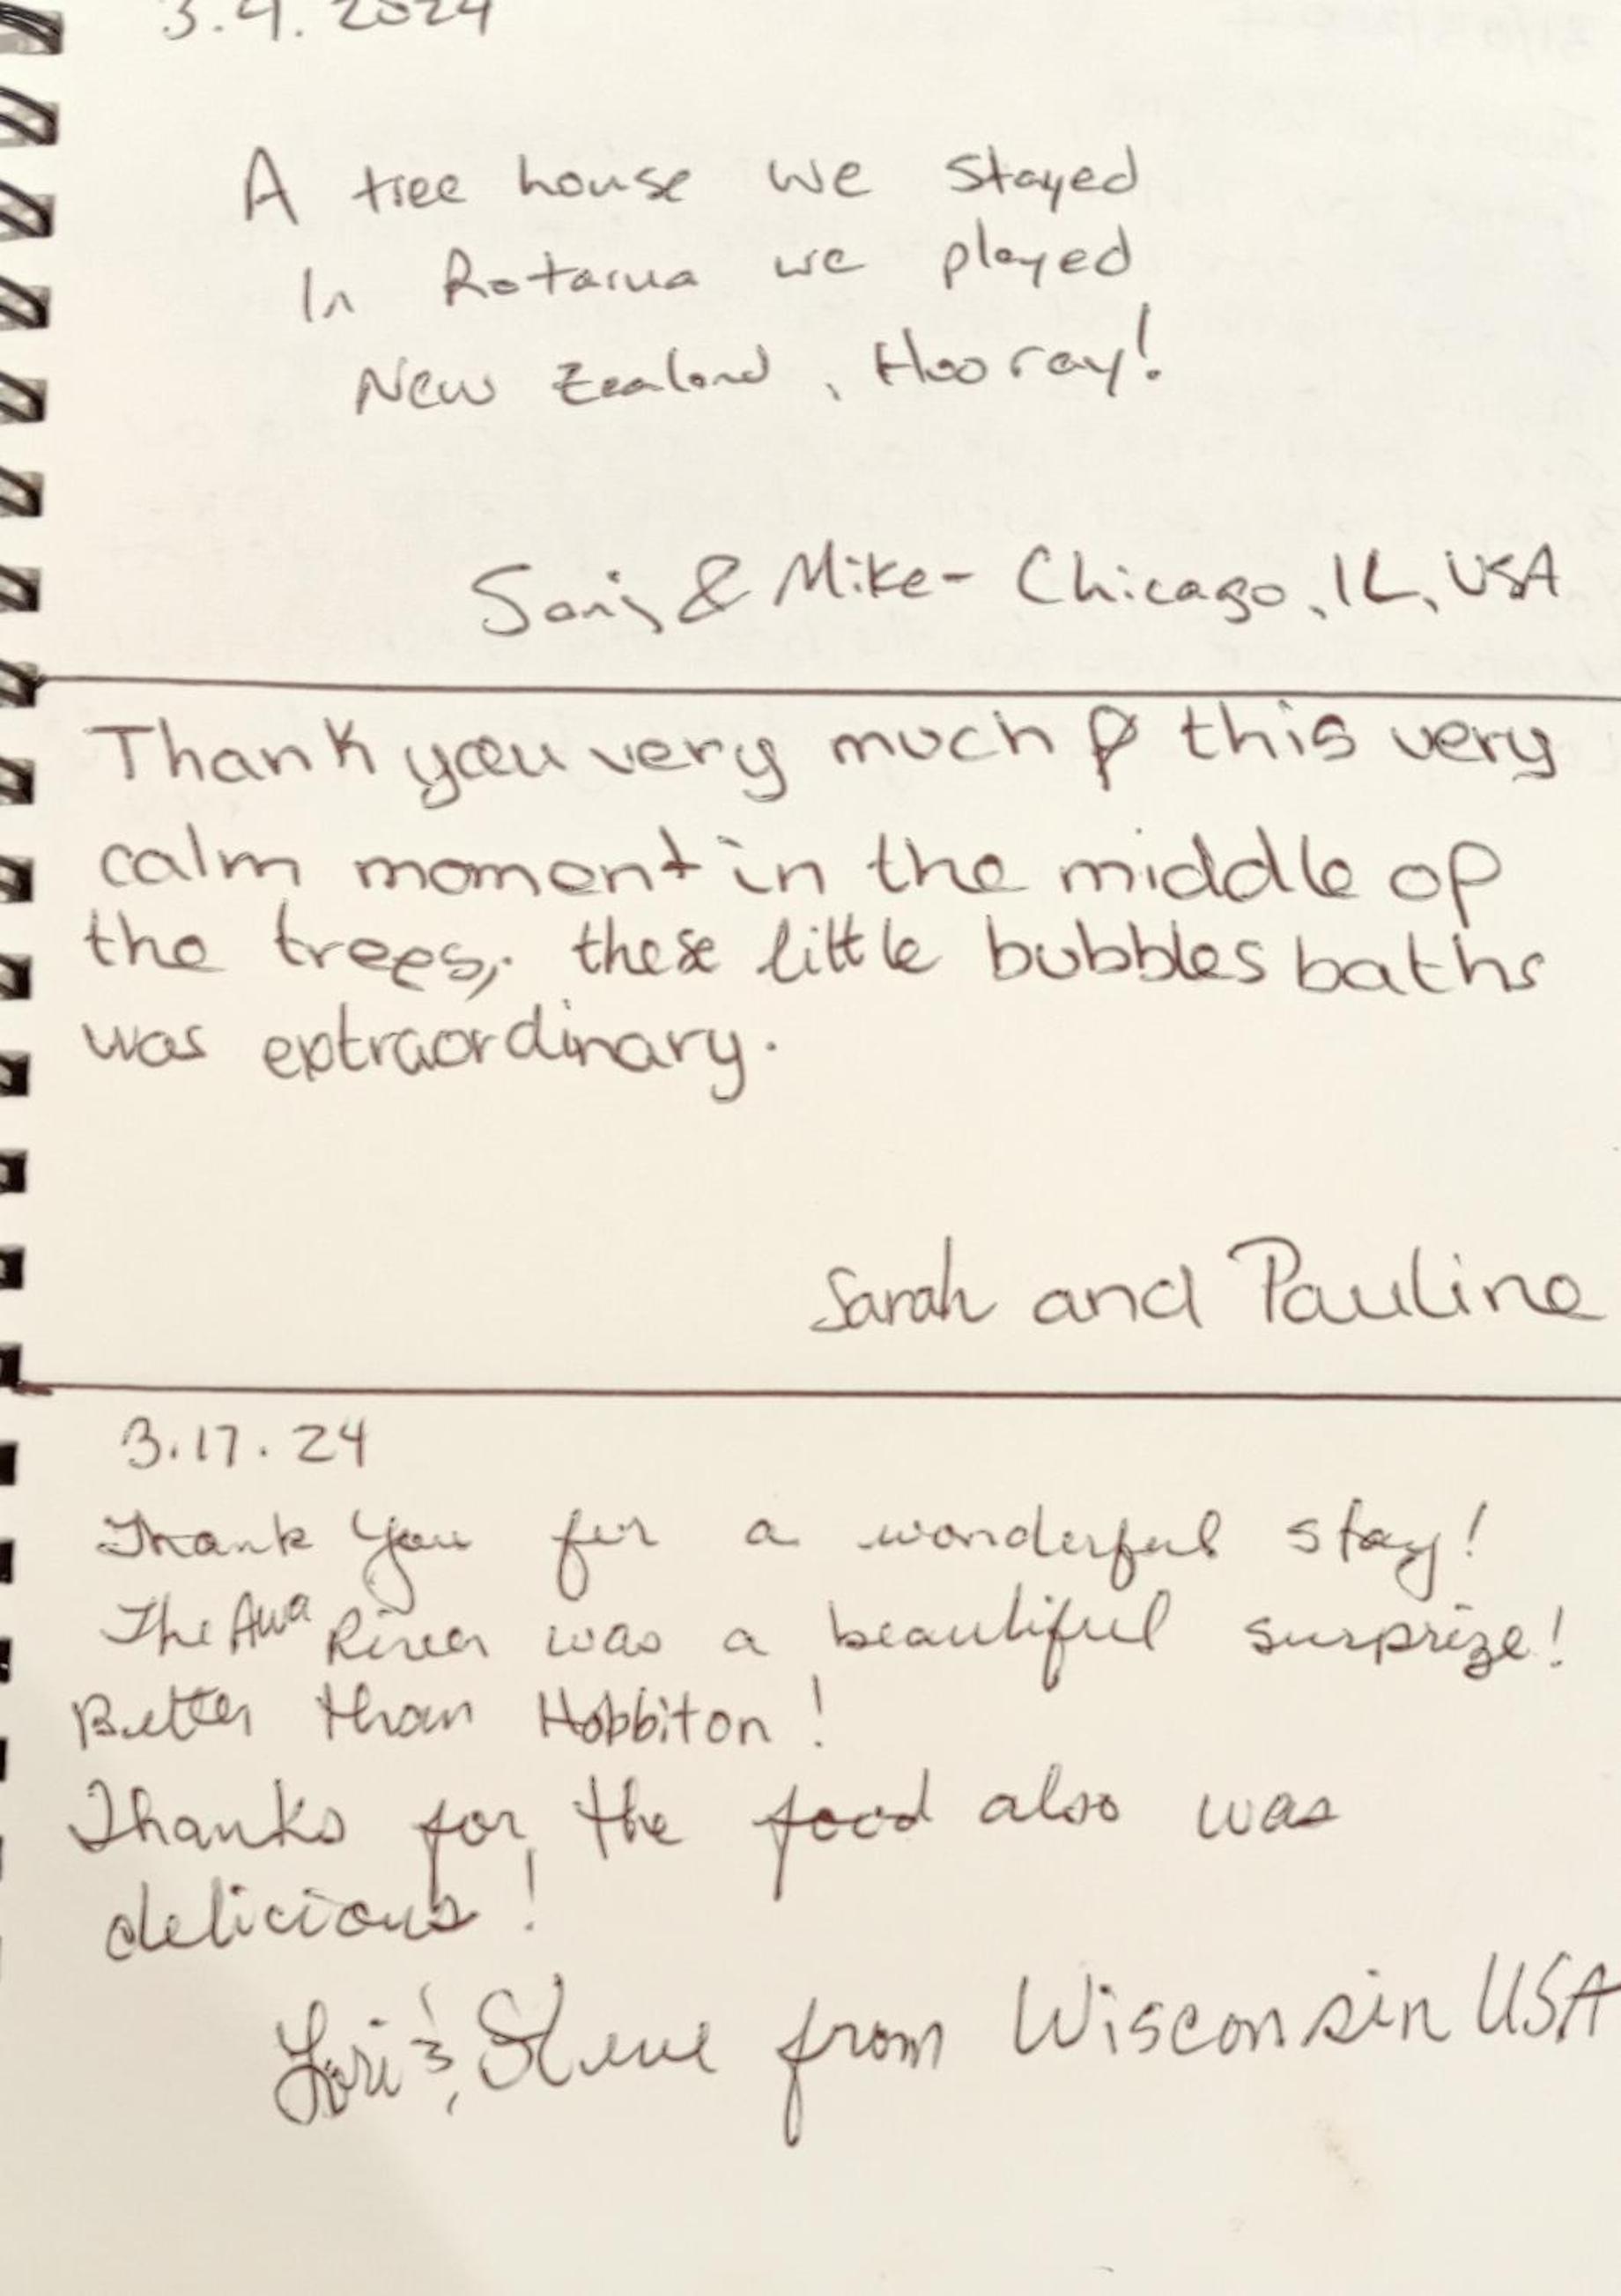 3.9.2024
A tree house we stayed
In Rotarua we played
New Zealand, Hooray!
& Mike - Chicago, IL, USA
Thank you very much this very
calm moment in the middle of
the trees, these little bubbles baths
was extraordinary.
Sarah and Pauline
3.17.24
Thank you for a wonderful stay!
The Awa River was a beautiful surprize!
Better than Hobbiton!
Thanks for the food also was
delicious!
Lori & Steve from Wisconsin USA